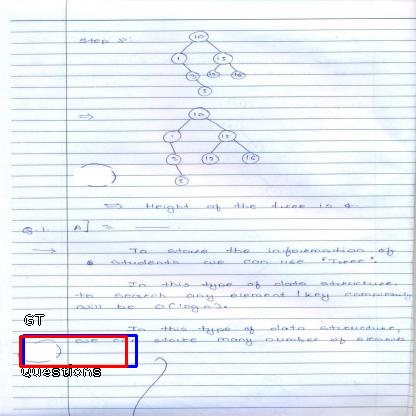 Step 5:
10
1 15
15 16
5
⇒ 10
1 15
5 15 16
5
⇒ Height of the tree is 4.
Q.1. A]
→ To store the information of
students we can use "Tree".
In this type of data structure,
to search any element / key complexity
will be O(log n).
GT
In this type of data structure,
we can store many number of elements
Questions